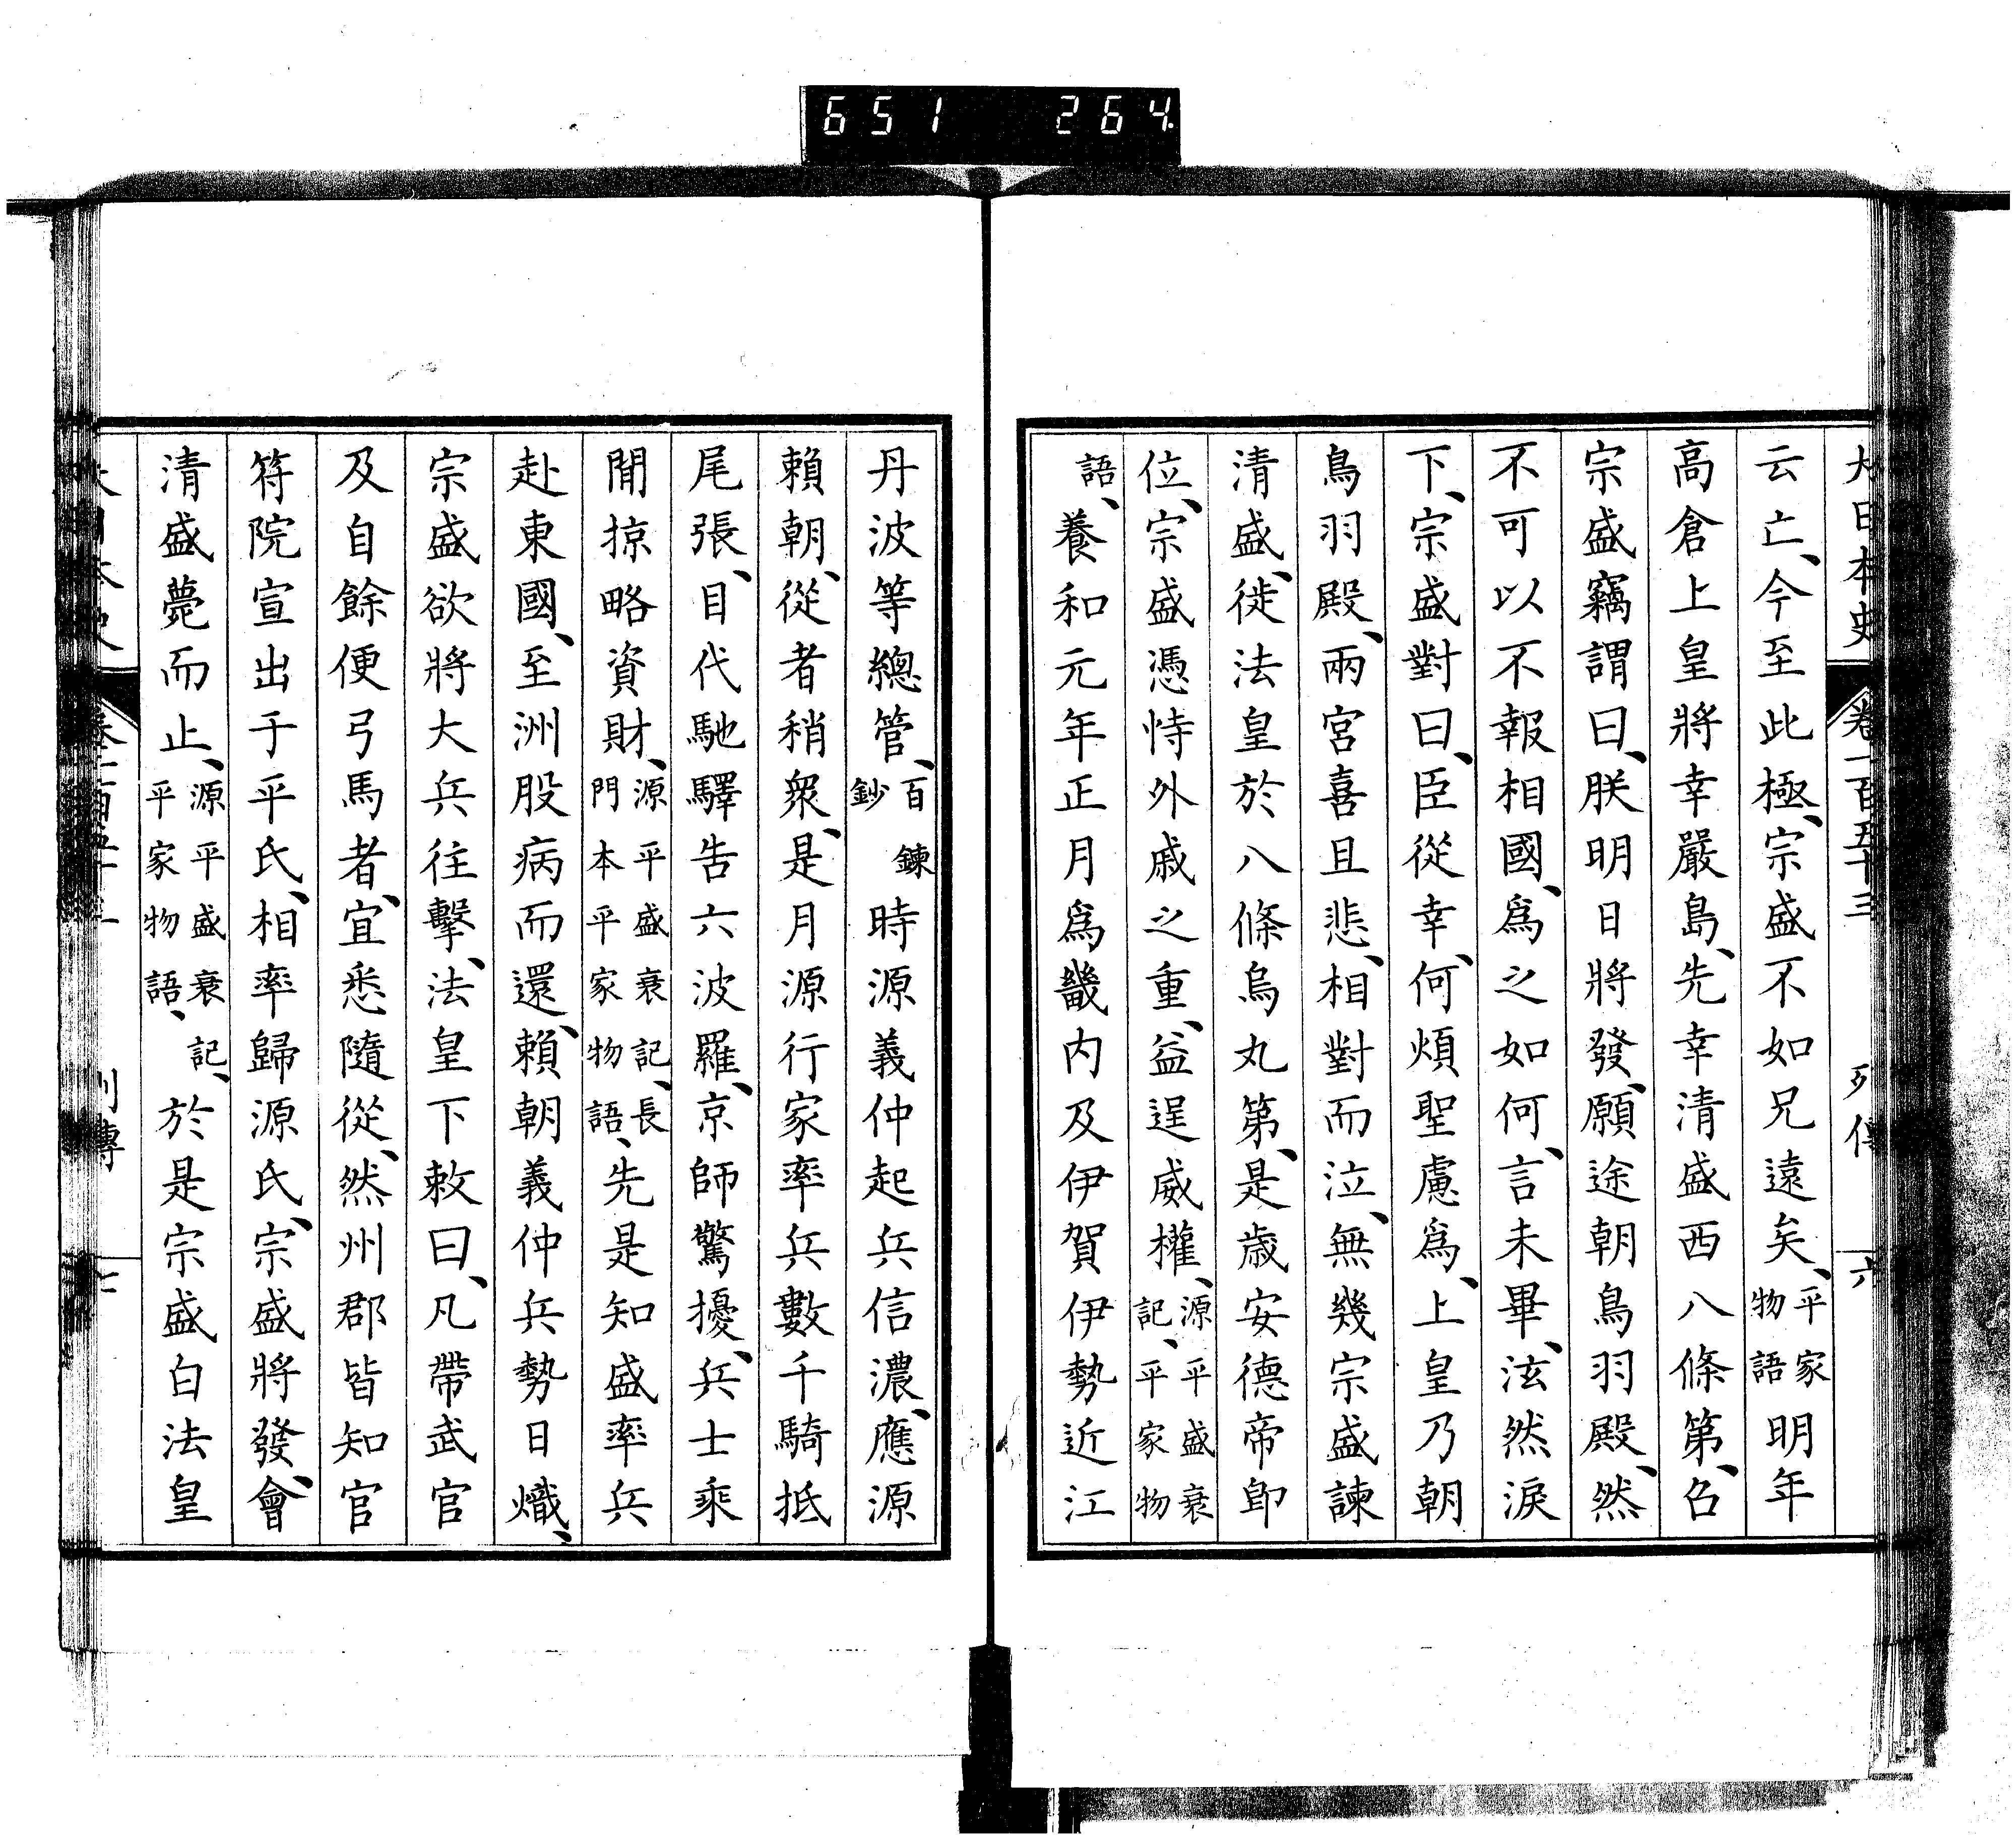 651 264
大日本史 卷一百五十三 列傳 六
云亡、今至此極、宗盛不如兄遠矣、平家物語明年
高倉上皇將幸嚴島、先幸清盛西八條第、召
宗盛竊謂曰、朕明日將發、願途朝鳥羽殿、然
不可以不報相國、爲之如何、言未畢、泫然淚
下、宗盛對曰、臣從幸、何煩聖慮爲、上皇乃朝
鳥羽殿、兩宮喜且悲、相對而泣、無幾宗盛諫
清盛、徙法皇於八條烏丸第、是歲安德帝卽
位、宗盛憑恃外戚之重、益逞威權、源平盛衰記、平家物
語、養和元年正月爲畿内及伊賀伊勢近江
丹波等總管、百鍊鈔時源義仲起兵信濃、應源
賴朝、從者稍衆、是月源行家率兵數千騎抵
尾張、目代馳驛告六波羅、京師驚擾、兵士乘
閒掠略資財、源平盛衰記、長門本平家物語、先是知盛率兵
赴東國、至洲股病而還、賴朝義仲兵勢日熾、
宗盛欲將大兵往擊、法皇下敕曰、凡帶武官
及自餘便弓馬者、宜悉隨從、然州郡皆知官
符院宣出于平氏、相率歸源氏、宗盛將發、會
清盛薨而止、源平盛衰記、平家物語、於是宗盛白法皇
列傳 七